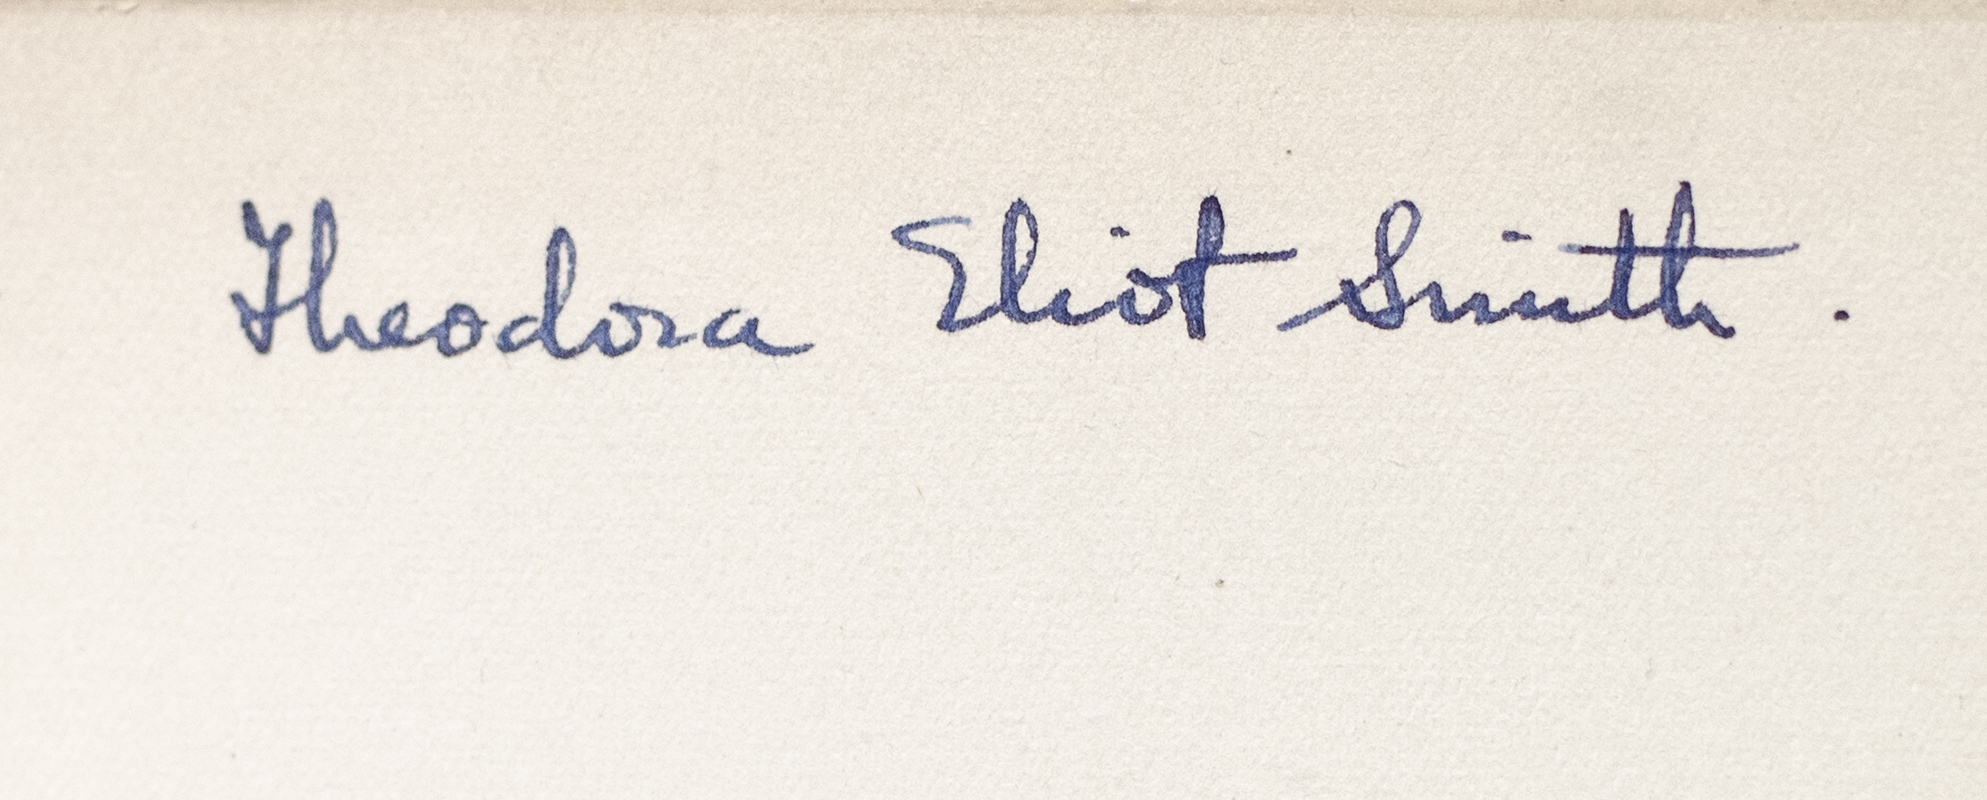 Theodora Eliot Smith.